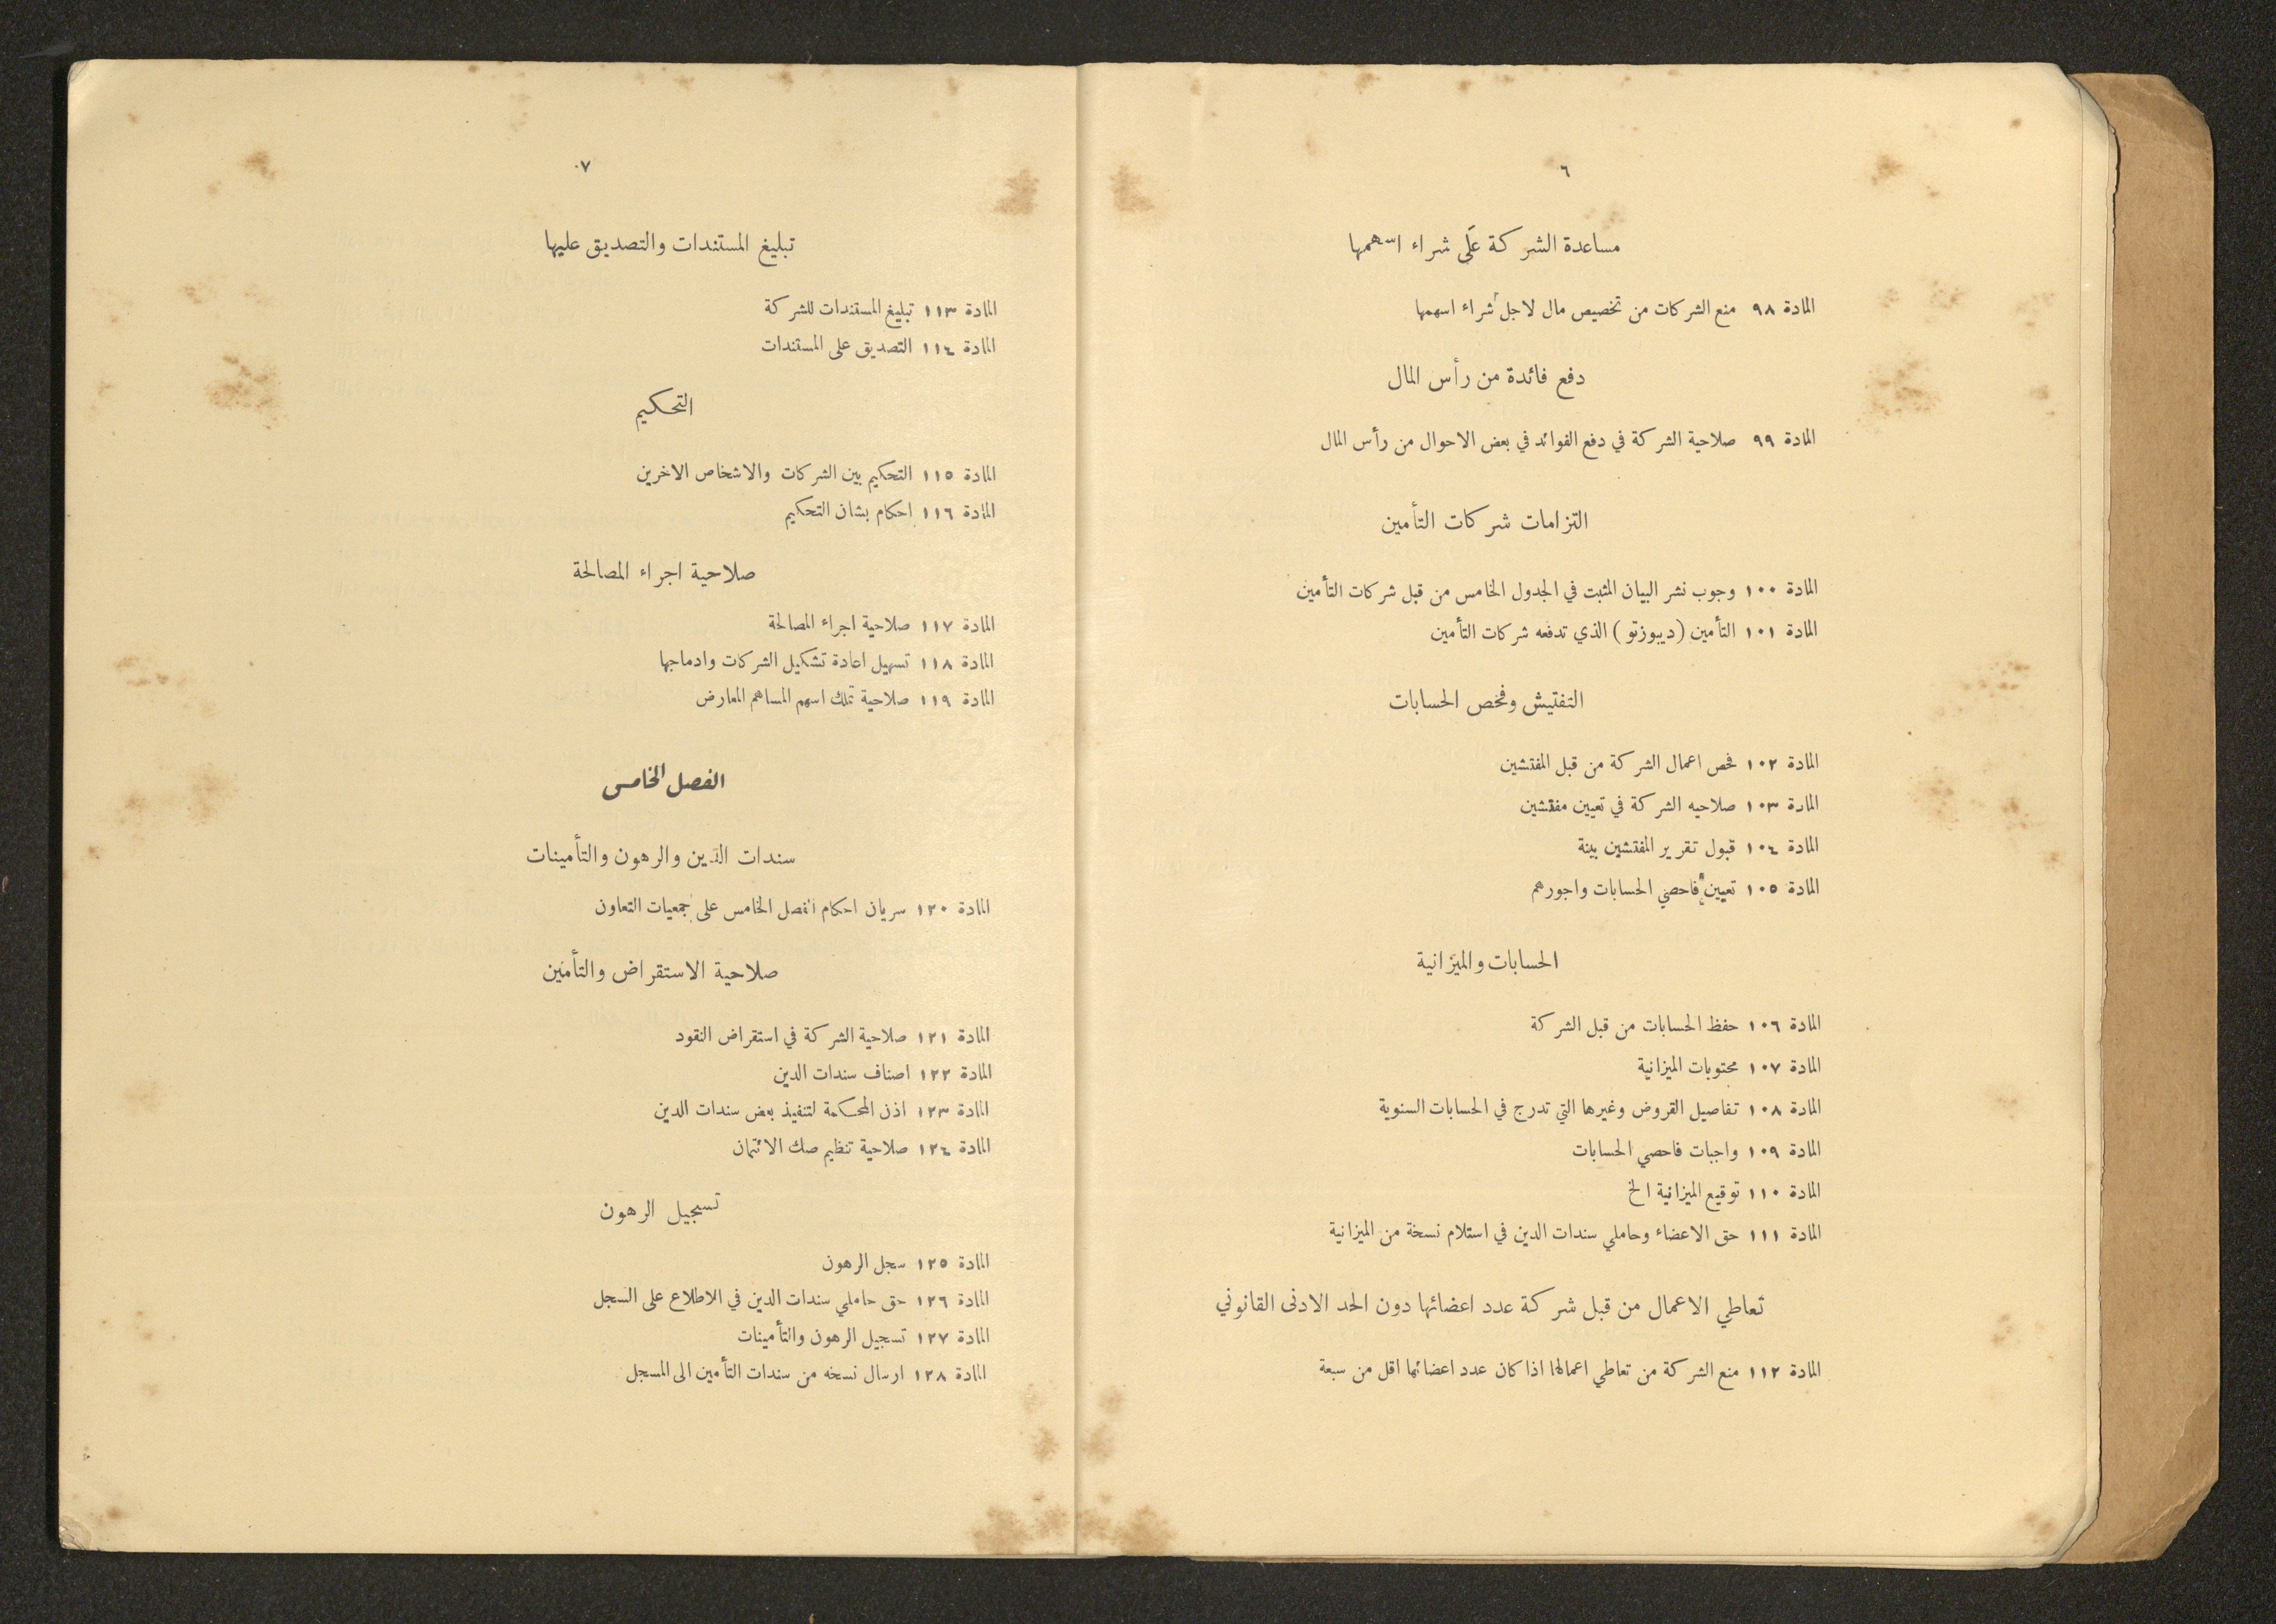 ٦
مساعدة الشركة على شراء اسهمها
المادة ٩٨ منع الشركات من تخصيص مال لاجل شراء اسهمها
دفع فائدة من رأس المال
المادة ٩٩ صلاحية الشركة في دفع الفوائد في بعض الاحوال من رأس المال
التزامات شركات التأمين
المادة ١٠٠ وجوب نشر البيان المثبت في الجدول الخامس من قبل شركات التأمين
المادة ١٠١ التأمين (ديبوزتو) الذي تدفعه شركات التأمين
التفتيش وفحص الحسابات
المادة ١٠٢ فحص اعمال الشركة من قبل المفتشين
المادة ١٠٣ صلاحيه الشركة في تعيين مفتشين
المادة ١٠٤ قبول تقرير المفتشين بينة
المادة ١٠٥ تعيين فاحصي الحسابات واجورهم
الحسابات والميزانية
المادة ١٠٦ حفظ الحسابات من قبل الشركة
المادة ١٠٧ محتويات الميزانية
المادة ١٠٨ تفاصيل القروض وغيرها التي تدرج في الحسابات السنوية
المادة ١٠٩ واجبات فاحصي الحسابات
المادة ١١٠ توقيع الميزانية الخ
المادة ١١١ حق الاعضاء وحاملي سندات الدين في استلام نسخة من الميزانية
تعاطي الاعمال من قبل شركة عدد اعضائها دون الحد الادنى القانوني
المادة ١١٢ منع الشركة من تعاطي اعمالها اذا كان عدد اعضائها اقل من سبعة
٧
تبليغ المستندات والتصديق عليها
المادة ١١٣ تبليغ المستندات للشركة
المادة ١١٤ التصديق على المستندات
التحكيم
المادة ١١٥ التحكيم بين الشركات والاشخاص الاخرين
المادة ١١٦ احكام بشان التحكيم
صلاحية اجراء المصالحة
المادة ١١٧ صلاحية اجراء المصالحة
المادة ١١٨ تسهيل اعادة تشكيل الشركات وادماجها
المادة ١١٩ صلاحية تملك اسهم المساهم المعارض
الفصل الخامس
سندات الدين والرهون والتأمينات
المادة ١٢٠ سريان احكام الفصل الخامس على جمعيات التعاون
صلاحية الاستقراض والتأمين
المادة ١٢١ صلاحية الشركة في استقراض النقود
المادة ١٢٢ اصناف سندات الدين
المادة ١٢٣ اذن المحكمة لتنفيذ بعض سندات الدين
المادة ١٢٤ صلاحية تنظيم صك الائتمان
تسجيل الرهون
المادة ١٢٥ سجل الرهون
المادة ١٢٦ حق حاملي سندات الدين في الاطلاع على السجل
المادة ١٢٧ تسجيل الرهون والتأمينات
المادة ١٢٨ ارسال نسخه من سندات التأمين الى المسجل